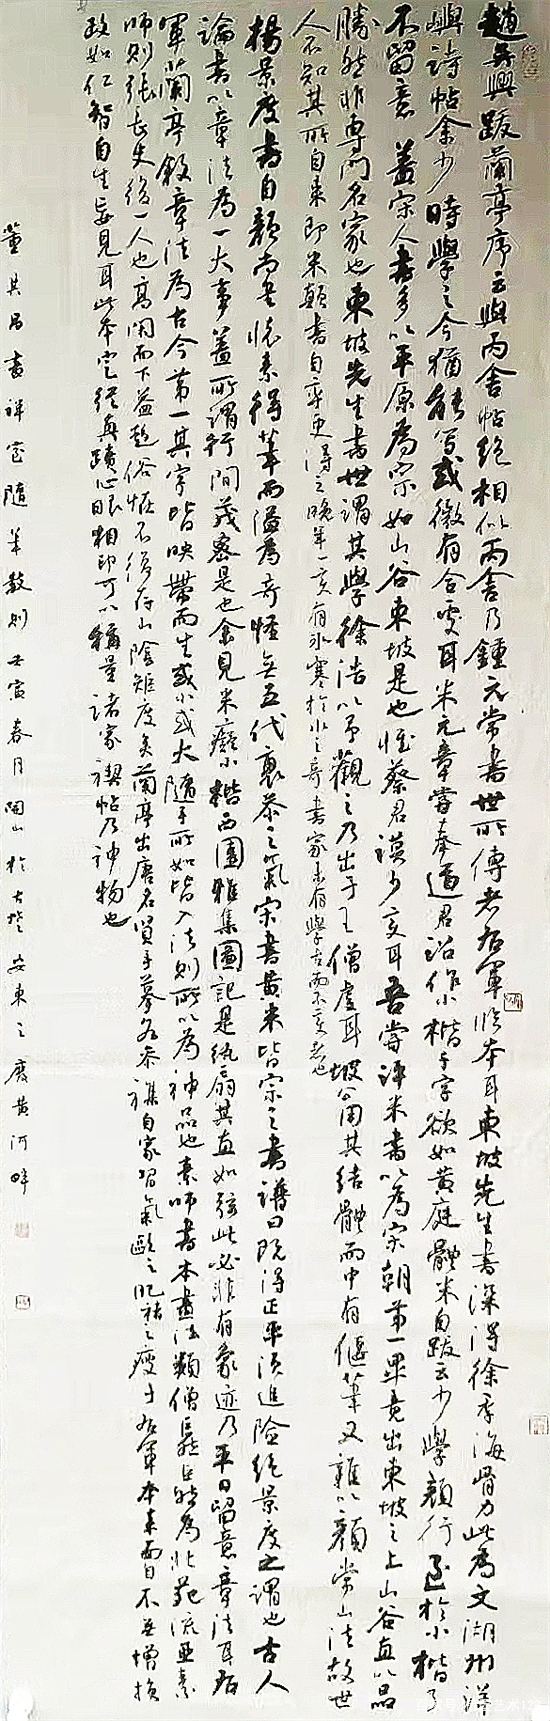 趙吳興跋蘭亭序云與丙舍帖絕相似丙舍乃鍾元常書世所傳者右軍臨本耳東坡先生書深得徐季海骨力此為文湖州洋
嶼詩帖余少時學之今猶能寫或微有合處耳米元章嘗奉道君詔作小楷千字欲如黃庭體米自跋云少學顏行至於小楷了
不留意蓋宋人書多以平原為宗如山谷東坡是也惟蔡君謨少變耳吾嘗評米書以為宋朝第一畢竟出東坡之上山谷直以品
勝然非專門名家也東坡先生書世謂其學徐浩以予觀之乃出于王僧虔耳坡公用其結體而中有偃筆又雜以顏常山法故世
人不知其所自來即米顛書自率更得之晚年一變有冰寒於水之奇書家未有學古而不變者也
楊景度書自顏尚書懷素得筆而溢為奇怪無五代衰苶之氣宋書黃米皆宗之書譜曰既得正平須追險絕景度之謂也古人
論書以章法為一大事蓋所謂行間茂密是也余見米癡小楷西園雅集圖記是紈扇其直如弦此必非有象迹乃平日留意章法耳右
軍蘭亭敘章法為古今第一其字皆映帶而生或小或大隨手所如皆入法則所以為神品也素師書本畫法類僧巨然巨然為北苑流亞素
師則張長史後一人也高閑而下益趨俗怪不復存山陰矩度矣蘭亭出唐名賢手摹各參雜自家習氣歐之肥褚之瘦于右軍本來面目不無增損
政如仁智自生妄見耳此本定從真蹟心眼相印可以稱量諸家禊帖乃神物也
董其昌畫禪室隨筆數則壬寅春月陶山於古楚安東之廢黃河畔